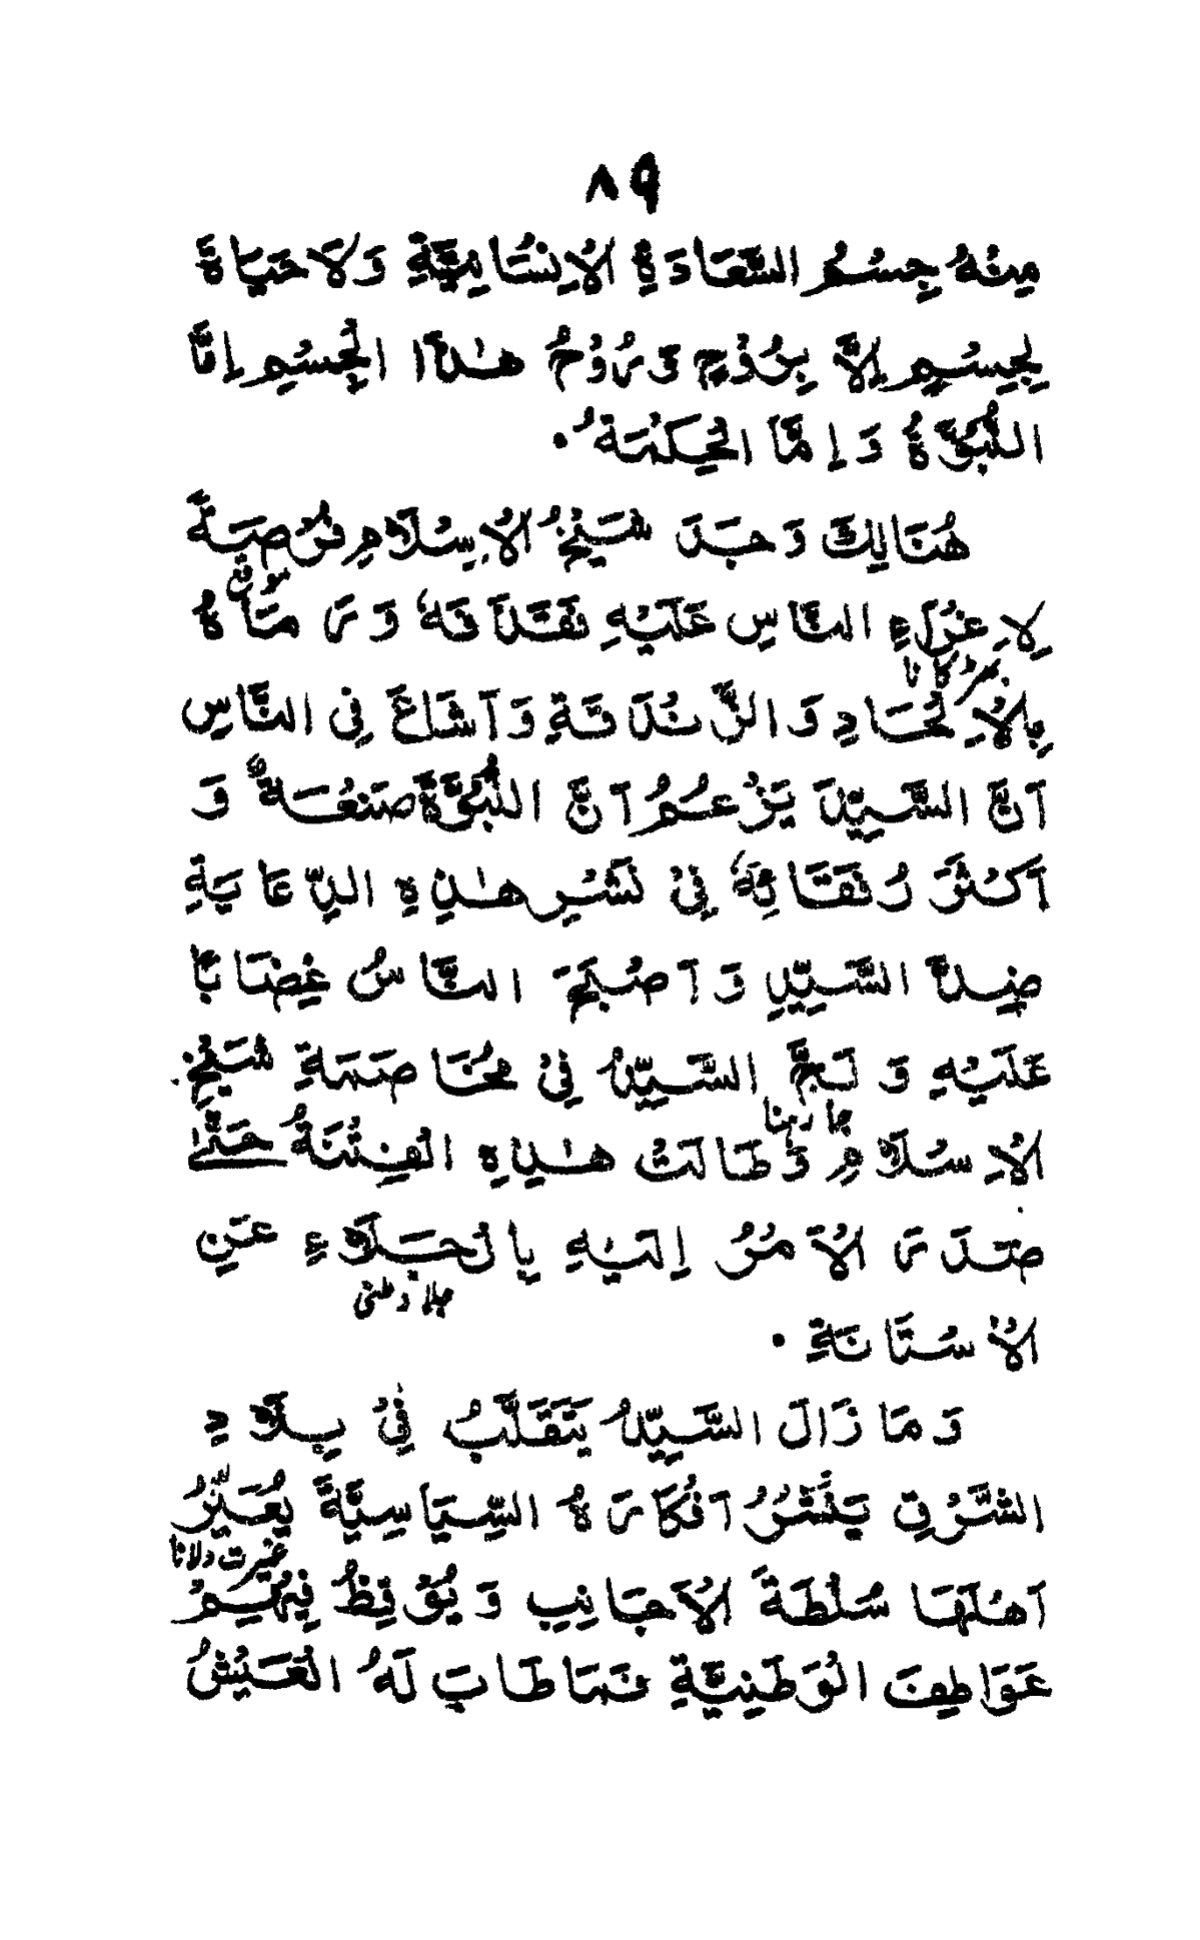 ٨٩
مِنْهُ جِسْمُ السَّعَادَةِ الْاِنْسَانِيَّةِ وَلَا حَيَاةَ
لِجِسْمٍ اِلَّا بِرُوْحٍ وَّرُوْحُ هٰذَا الْجِسْمِ اِمَّا
النُّبُوَّةُ وَاِمَّا الْحِكْمَةُ ۰
هُنَالِكَ وَجَدَ شَيْخُ الْاِسْلَامِ فُرْصَةً
موقع
لِاِغْرَاءِ النَّاسِ عَلَيْهِ فَقَذَفَهٗ وَرَمَاهُ
بھڑکانا
بِالْاِلْحَادِ وَالزَّنْدَقَةِ وَاَشَاعَ فِى النَّاسِ
اَنَّ السَّيِّدَ يَزْعُمُ اَنَّ النُّبُوَّةَ صَنْعَةٌ وَ
اَكْثَرَ رُفَقَائِهٗ فِىْ نَشْرِ هٰذِهِ الدِّعَايَةِ
ضِدَّ السَّيِّدِ وَاَصْبَحَ النَّاسُ غِضَابًا
عَلَيْهِ وَلَجَّ السَّيِّدُ فِىْ مُخَاصَمَةِ شَيْخِ
جما رہنا
الْاِسْلَامِ وَطَالَتْ هٰذِهِ الْفِتْنَةُ حَتّٰى
صَدَرَ الْاَمْرُ اِلَيْهِ بِالْجَلَاءِ عَنِ
جلا وطنی
الْاَسْتَانَةِ ۰
وَمَا زَالَ السَّيِّدُ يَتَقَلَّبُ فِىْ بِلَادِ
الشَّرْقِ يَنْشُرُ اَفْكَارَهُ السِّيَاسِيَّةَ يُعَيِّرُ
غیرت دلانا
اَهْلَهَا سُلْطَةَ الْاَجَانِبِ وَيُوْقِظُ فِيْهِمْ
عَوَاطِفَ الْوَطَنِيَّةِ فَمَا طَابَ لَهُ الْعَيْشُ